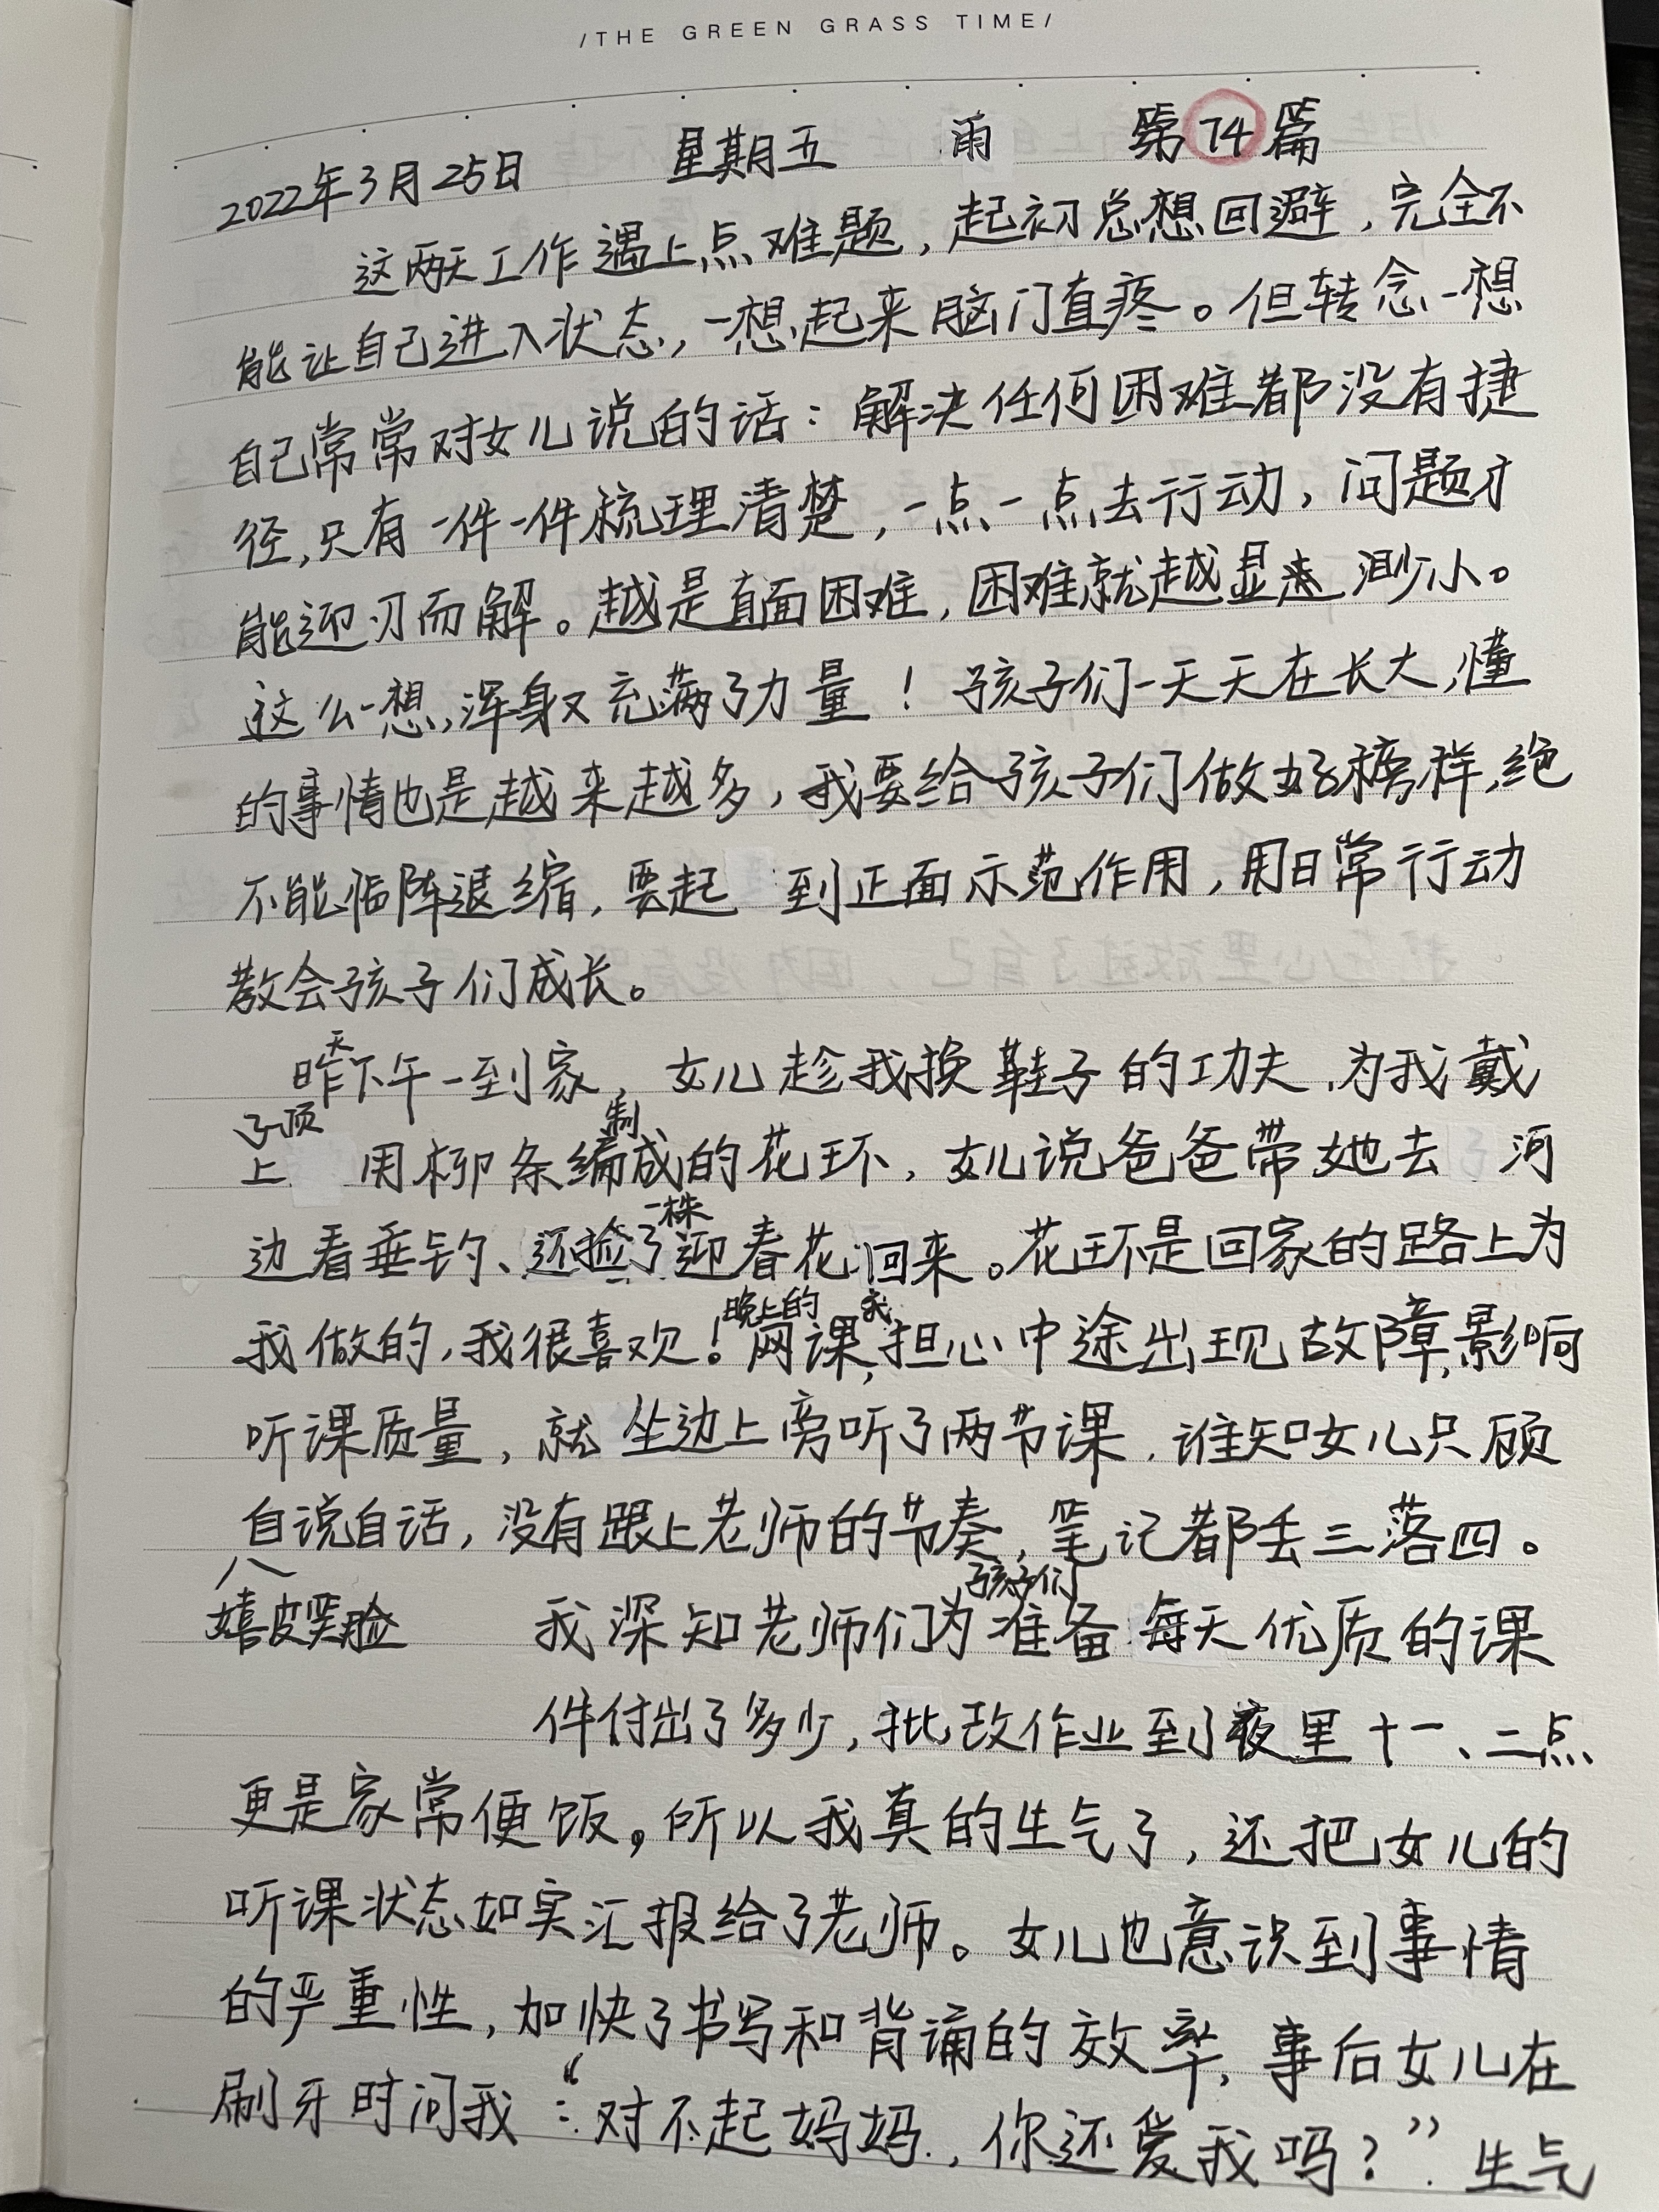 /THE GREEN GRASS TIME/
2022年3月25日 星期五 雨 第74篇
这两天工作遇上点难题,起初总想回避,完全不
能让自己进入状态,一想起来脑门直疼。但转念一想
自己常常对女儿说的话:解决任何困难都没有捷
径,只有一件一件梳理清楚,一点一点去行动,问题才
能迎刃而解。越是直面困难,困难就越显来渺小。
这么一想,浑身又充满了力量!孩子们一天天在长大,懂
的事情也是越来越多,我要给孩子们做好榜样,绝
不能临阵退缩,要起到正面示范作用,用日常行动
教会孩子们成长。
昨天下午一到家,女儿趁我换鞋子的功夫,为我戴
上了顶用柳条编制成的花环,女儿说爸爸带她去河
边看垂钓、还捡了一株迎春花回来。花环是回家的路上为
我做的,我很喜欢!晚上的网课,我担心中途出现故障,影响
听课质量,就坐边上旁听了两节课,谁知女儿只顾
自说自话,没有跟上老师的节奏,笔记都丢三落四。
嬉皮笑脸 我深知老师们为孩子们准备每天优质的课
件付出了多少,批改作业到夜里十一、二点
更是家常便饭,所以我真的生气了,还把女儿的
听课状态如实汇报给了老师。女儿也意识到事情
的严重性,加快了书写和背诵的效率,事后女儿在
刷牙时问我:“对不起妈妈,你还爱我吗?”生气